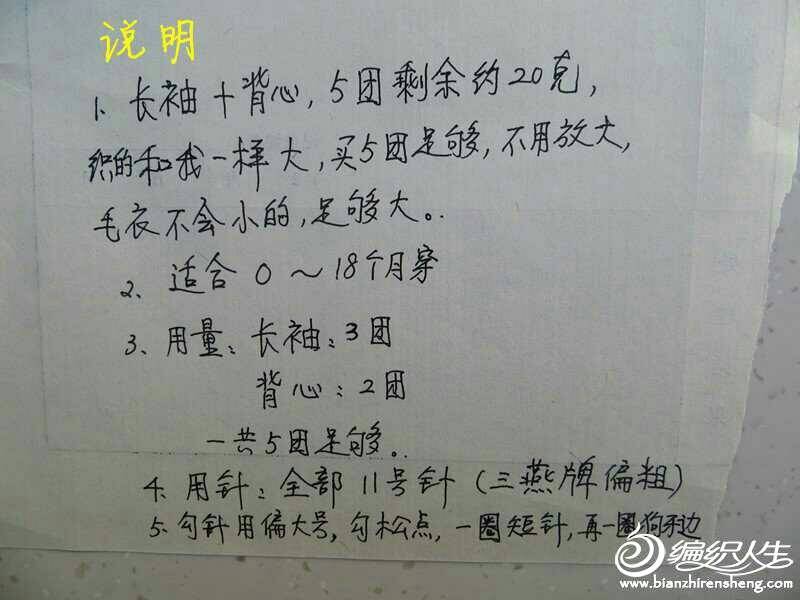 说明
1、长袖+背心，5团剩余约20克，
织的和我一样大，买5团足够，不用放大，
毛衣不会小的，足够大。.
2、适合0～18个月穿
3、用量：长袖：3团
背心：2团
一共5团足够。
4、用针：全部11号针（三燕牌偏粗）
5、勾针用偏大号，勾松点，一圈短针，再一圈狗牙边
编织人生
www.bianzhirensheng.com